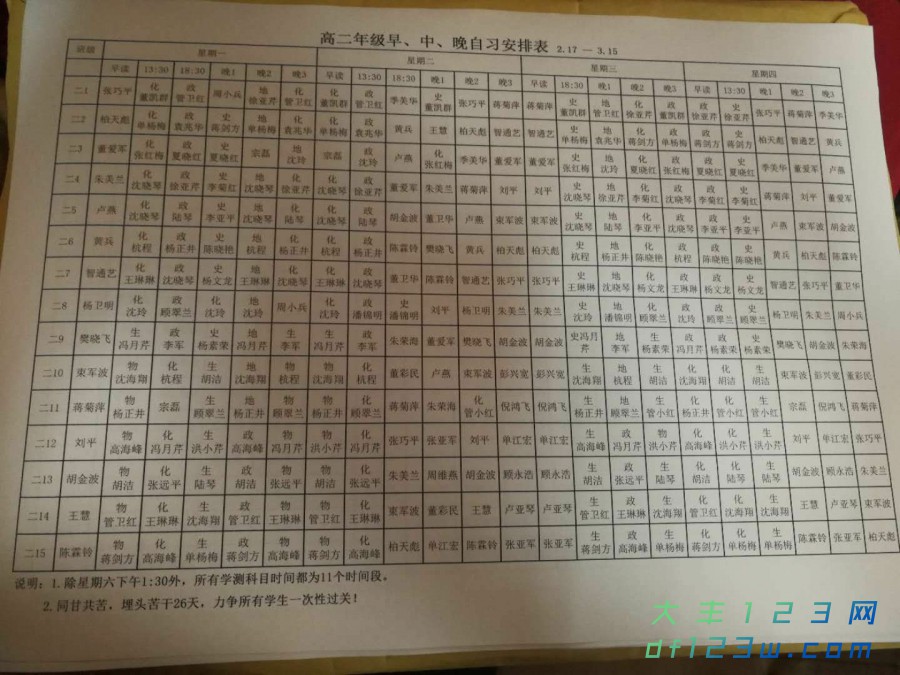 高二年级早、中、晚自习安排表 2.17 — 3.15
班级 星期一 星期二 星期三 星期四
早读 13:30 18:30 晚1 晚2 晚3 早读 13:30 18:30 晚1 晚2 晚3 早读 18:30 晚1 晚2 晚3 早读 13:30 晚1 晚2 晚3
二1 张巧平 化 董凯群 政 管卫红 周小兵 地 徐亚芹 化 管卫红 化 董凯群 政 管卫红 季美华 史 董凯群 张巧平 蒋菊萍 蒋菊萍 史 董凯群 地 管卫红 化 徐亚芹 政 董凯群 政 徐亚芹 史 徐亚芹 张巧平 蒋菊萍 季美华
二2 柏天彪 化 单杨梅 政 袁兆华 史 蒋剑方 地 单杨梅 化 袁兆华 化 单杨梅 政 袁兆华 黄兵 王慧 柏天彪 智通艺 智通艺 史 单杨梅 地 袁兆华 化 蒋剑方 政 单杨梅 政 蒋剑方 史 蒋剑方 柏天彪 智通艺 黄兵
二3 董爱军 化 张红梅 政 夏晓红 史 夏晓红 宗磊 地 沈玲 宗磊 政 沈玲 卢燕 化 张红梅 季美华 董爱军 董爱军 史 张红梅 地 沈玲 化 夏晓红 政 张红梅 政 夏晓红 史 夏晓红 季美华 董爱军 卢燕
二4 朱美兰 化 沈晓琴 政 徐亚芹 史 李菊红 地 沈晓琴 化 徐亚芹 化 沈晓琴 政 徐亚芹 董爱军 朱美兰 蒋菊萍 刘平 刘平 史 沈晓琴 地 徐亚芹 化 李菊红 政 沈晓琴 政 李菊红 史 李菊红 蒋菊萍 刘平 董爱军
二5 卢燕 化 沈晓琴 政 陆琴 史 李亚平 地 沈晓琴 化 陆琴 化 沈晓琴 政 陆琴 胡金波 董卫华 卢燕 束军波 束军波 史 沈晓琴 地 陆琴 化 李亚平 政 沈晓琴 政 李亚平 史 李亚平 卢燕 束军波 胡金波
二6 黄兵 化 杭程 政 杨正井 史 陈晓艳 地 杭程 化 杨正井 化 杭程 政 杨正井 陈霖铃 樊晓飞 黄兵 柏天彪 柏天彪 史 杭程 地 杨正井 化 陈晓艳 政 杭程 政 陈晓艳 史 陈晓艳 黄兵 柏天彪 陈霖铃
二7 智通艺 化 王琳琳 政 沈晓琴 史 杨文龙 地 王琳琳 化 沈晓琴 化 王琳琳 政 沈晓琴 董卫华 陈霖铃 智通艺 张巧平 张巧平 史 王琳琳 地 沈晓琴 化 杨文龙 政 王琳琳 政 杨文龙 史 杨文龙 智通艺 张巧平 董卫华
二8 杨卫明 化 沈玲 政 顾翠兰 化 沈玲 地 沈玲 周小兵 化 沈玲 政 潘锦明 史 潘锦明 刘平 杨卫明 朱美兰 朱美兰 史 沈玲 地 潘锦明 化 顾翠兰 政 沈玲 政 顾翠兰 史 顾翠兰 杨卫明 朱美兰 周小兵
二9 樊晓飞 生 冯月芹 政 李军 史 杨素荣 地 冯月芹 生 李军 生 冯月芹 政 李军 朱荣海 董爱军 樊晓飞 胡金波 胡金波 史冯月芹 地 李军 生 杨素荣 政 冯月芹 政 杨素荣 史 杨素荣 樊晓飞 胡金波 朱荣海
二10 束军波 物 沈海翔 化 杭程 生 胡洁 地 沈海翔 物 杭程 物 沈海翔 化 杭程 董彩民 卢燕 束军波 彭兴宽 彭兴宽 生 沈海翔 地 杭程 生 胡洁 化 沈海翔 化 胡洁 生 胡洁 束军波 彭兴宽 董彩民
二11 蒋菊萍 物 杨正井 宗磊 生 顾翠兰 地 杨正井 物 顾翠兰 物 杨正井 化 顾翠兰 蒋菊萍 朱荣海 化 管小红 倪鸿飞 倪鸿飞 生 杨正井 地 顾翠兰 生 管小红 化 杨正井 化 管小红 生 管小红 宗磊 倪鸿飞 蒋菊萍
二12 刘平 物 高海峰 化 冯月芹 生 洪小芹 政 高海峰 物 冯月芹 物 洪小芹 化 冯月芹 张巧平 张亚军 刘平 单江宏 单江宏 生 高海峰 政 冯月芹 物 洪小芹 化 高海峰 化 洪小芹 生 洪小芹 刘平 单江宏 张巧平
二13 胡金波 物 胡洁 化 张远平 生 陆琴 政 胡洁 物 张远平 物 胡洁 化 张远平 朱美兰 周维燕 胡金波 顾永浩 顾永浩 生 胡洁 政 张远平 生 陆琴 化 胡洁 化 陆琴 生 陆琴 胡金波 顾永浩 朱美兰
二14 王慧 物 管卫红 化 王琳琳 生 沈海翔 政 管卫红 物 王琳琳 物 管卫红 化 王琳琳 束军波 董彩民 王慧 卢亚琴 卢亚琴 生 管卫红 政 王琳琳 生 沈海翔 化 管卫红 化 沈海翔 生 沈海翔 王慧 卢亚琴 束军波
二15 陈霖铃 物 蒋剑方 化 高海峰 生 单杨梅 政 蒋剑方 物 高海峰 物 蒋剑方 化 高海峰 柏天彪 单江宏 陈霖铃 张亚军 张亚军 生 蒋剑方 政 高海峰 生 单杨梅 化 蒋剑方 化 单杨梅 生 单杨梅 陈霖铃 张亚军 柏天彪
说明：1. 除星期六下午1:30外，所有学测科目时间都为11个时间段。
2. 同甘共苦，埋头苦干26天，力争所有学生一次性过关！
大丰123网
df123w.com